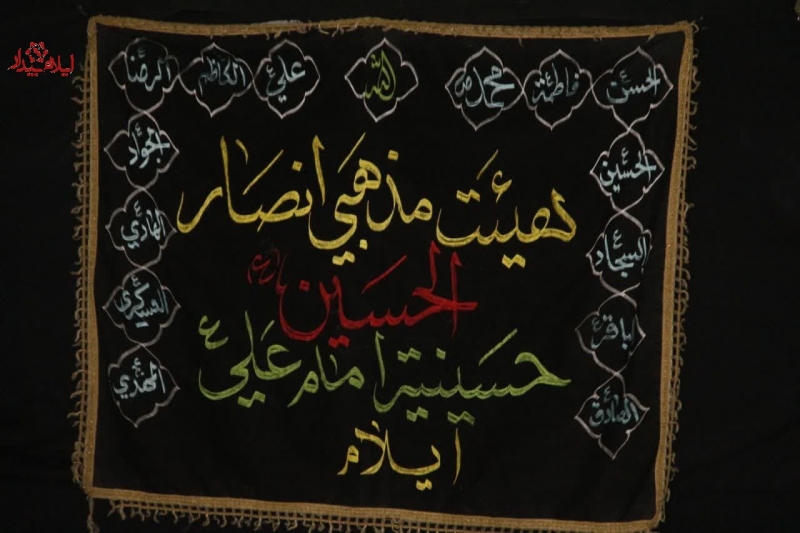 ایلام بیدار
الحسن فاطمة محمد ص الله علي ع الكاظم الرضا
الحسين الجواد
السجاد الهادي
باقر ع العسكري
الصادق المهدي
هیئت مذهبي انصار
الحسین (ع)
حسینیۀ امام علي ع
ایلام